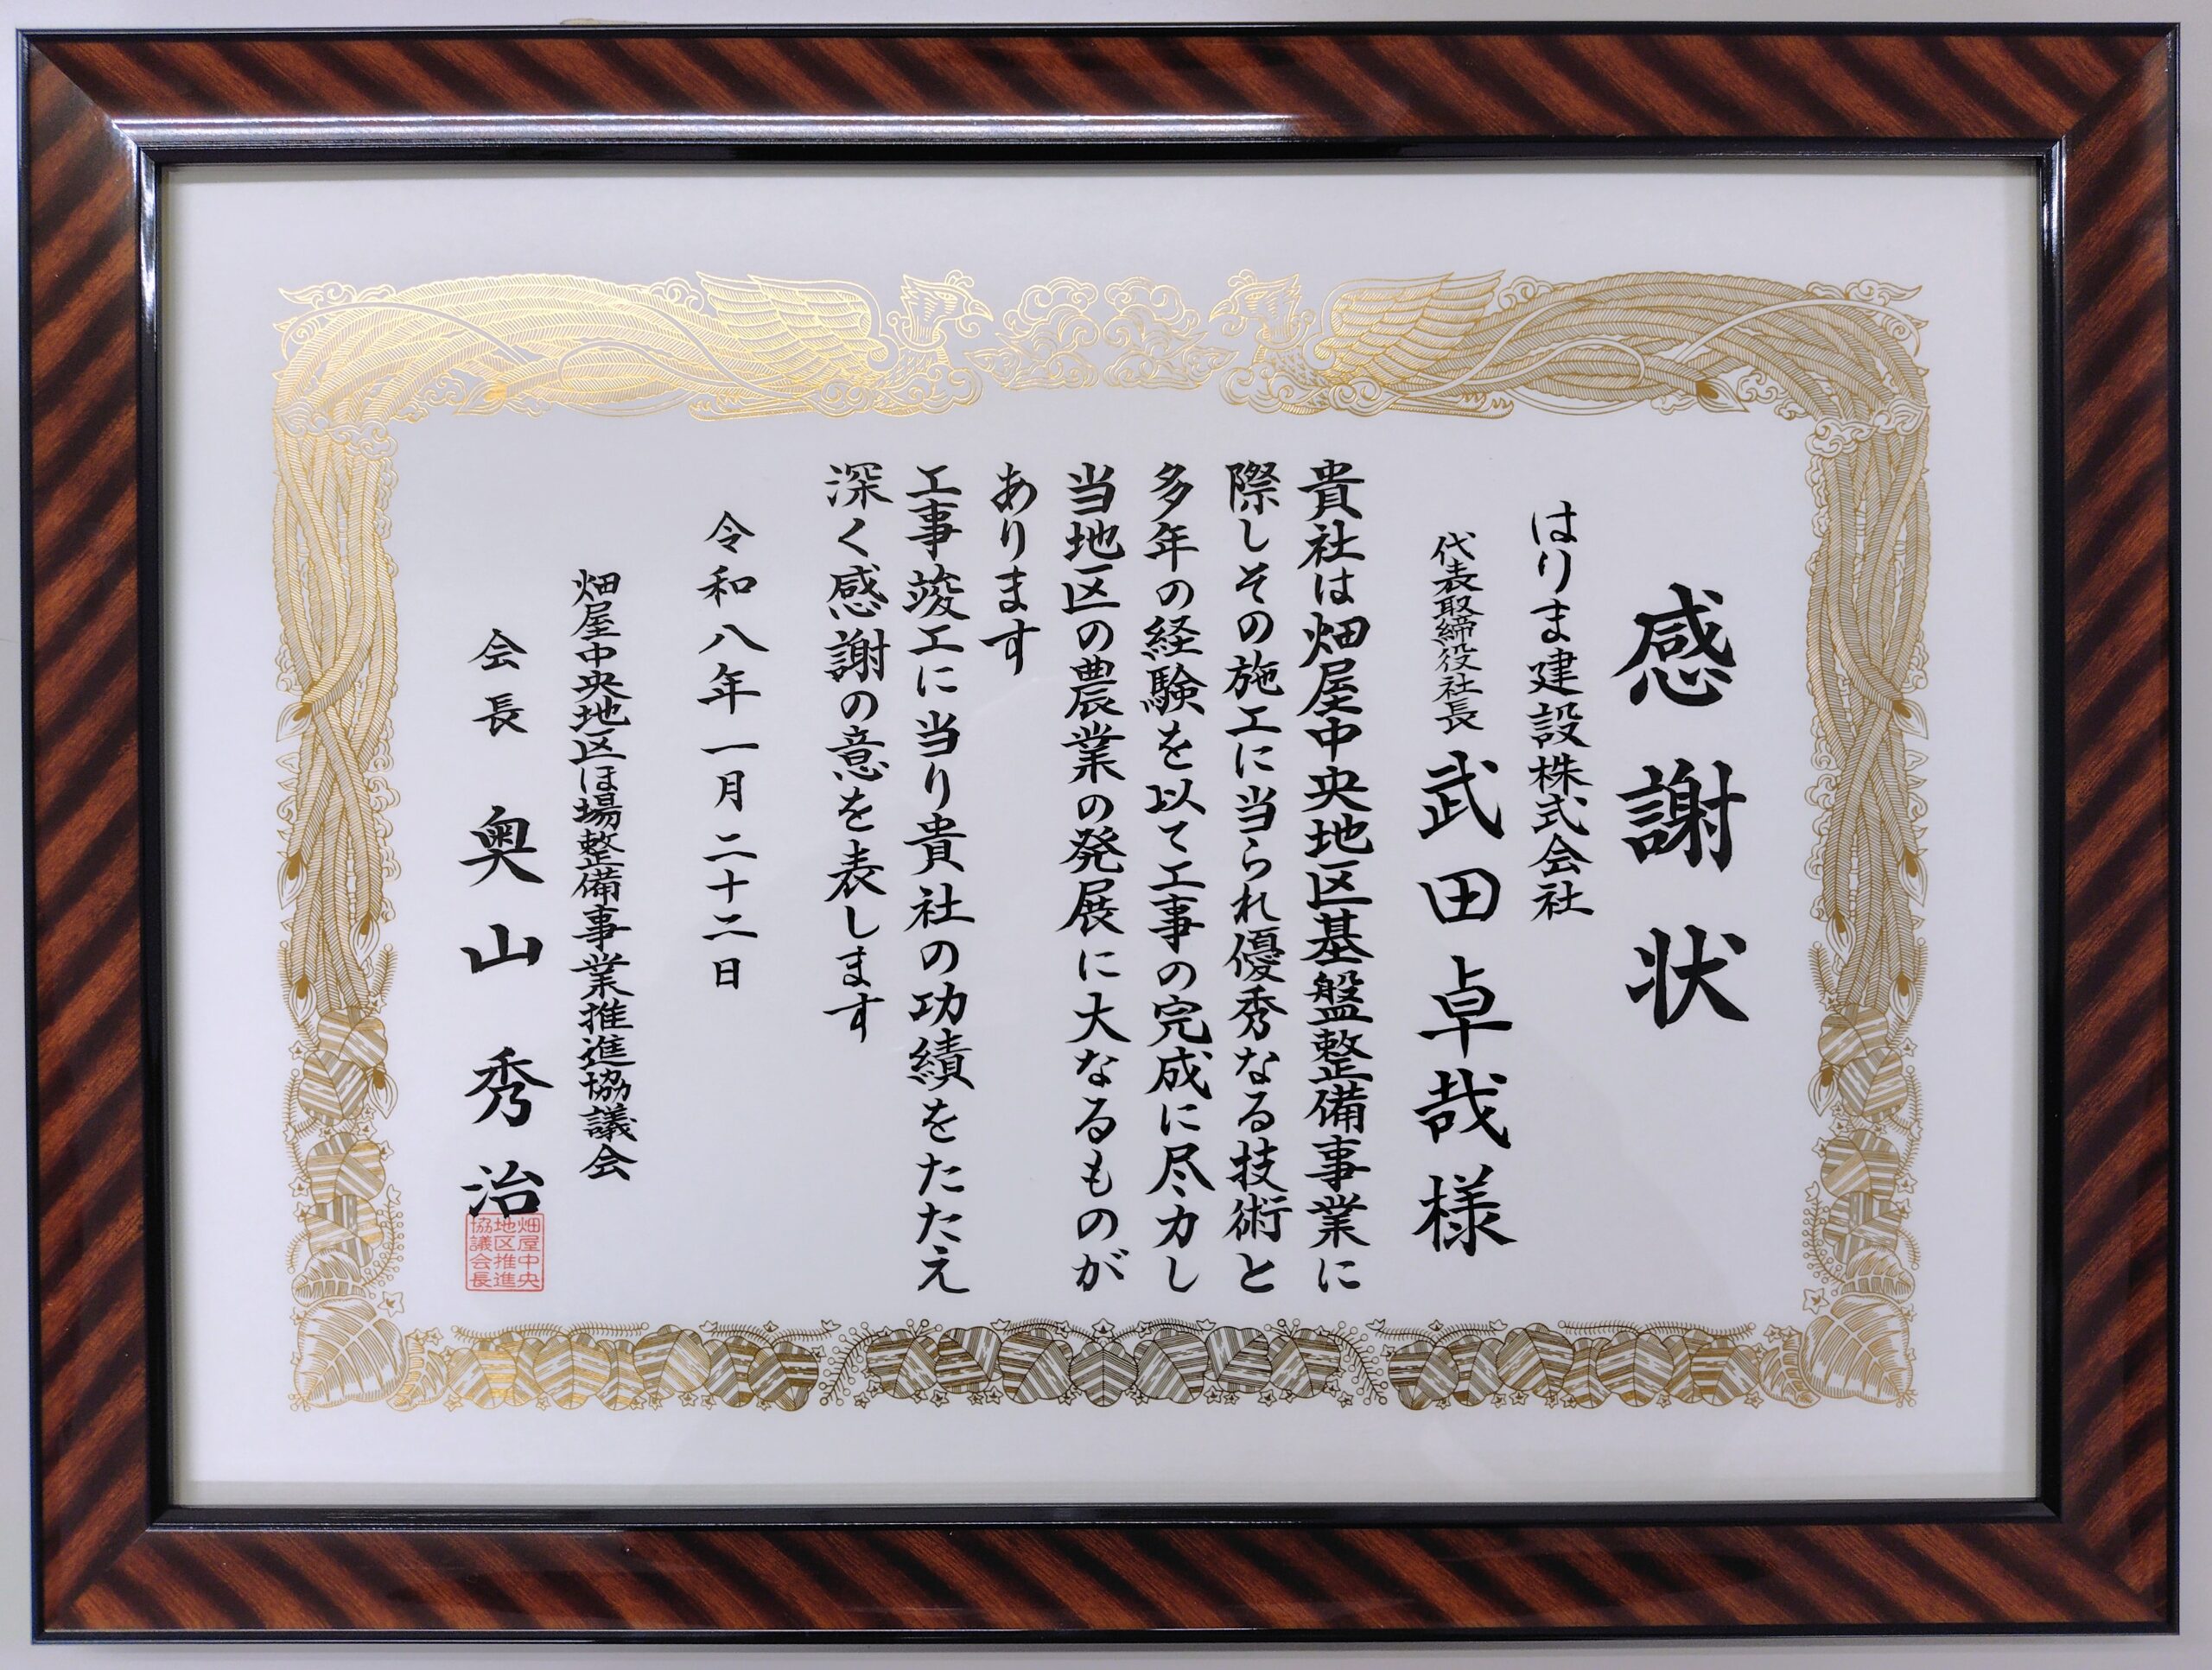 感謝状
はりま建設株式会社
代表取締役社長 武田卓哉様
貴社は畑屋中央地区基盤整備事業に
際しその施工に当られ優秀なる技術と
多年の経験を以て工事の完成に尽力し
当地区の農業の発展に大なるものが
あります
工事竣工に当り貴社の功績をたたえ
深く感謝の意を表します
令和八年一月二十二日
畑屋中央地区ほ場整備事業推進協議会
会長 奥山秀治
畑屋中央
地区推進
協議会長